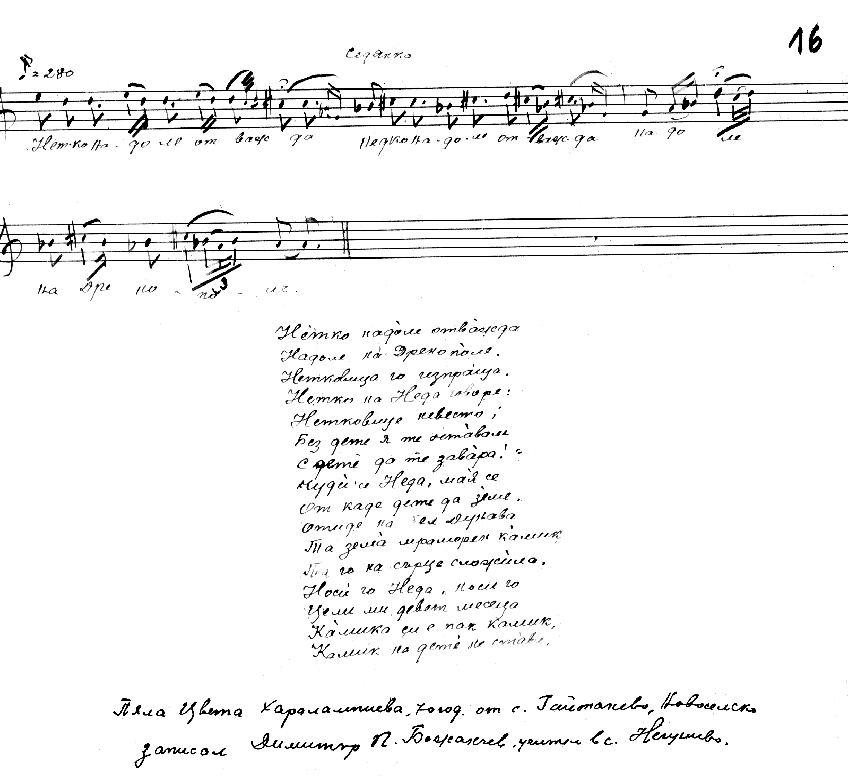 16
Седянка
= 280
Нетко на - до ле от важ да Недко на - до - ле от важ - да на до ле
на Дре но - по - ле.
Нѐтко надо̀ле отва̀жда
Надоле на̀ Дренопо̀ле.
Нетковица го изпра̀ща.
Нетко на Неда говоре:
Нетковице невесто;
Без дете я те оста̀вам
С детѐ да те зава̀ра!"
Чудѝ се Неда, ма̀я се
От каде дете да зѐме.
Отиде на бел Дунава
Та зема̀ мраморен ка̀мик
Та го на сърце сложѝла.
Носи го Неда, носи го
Цели ми девет месеца
Ка̀мика си е пак камик,
Камик на детѐ не става.
Пяла Цвета Харалампиева, год. от с. Гайтанево, Новоселско
записал Димитър П. учител в с.